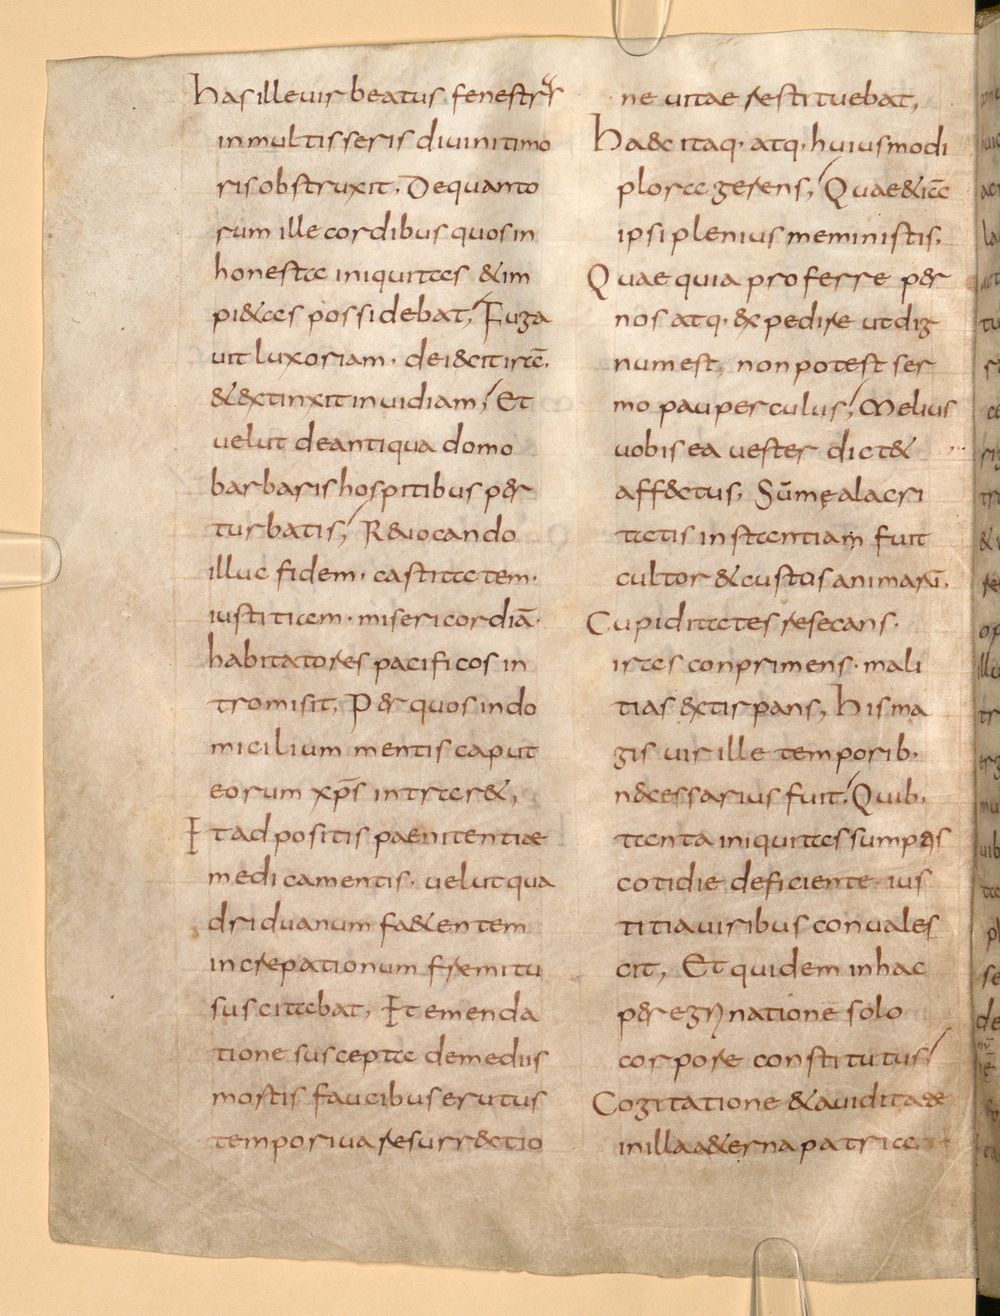 has ille uir beatus fenestras
in multis seris diuini timo
ris obstruxit, De quanto
rum ille cordibus quos in
honestae iniquitas & im
pi&as possidebat, Fuga
uit luxoriam · deiecit irā,
& extinxit inuidiam, Et
uelut de antiqua domo
barbaris hospitibus per
turbatis, Reuocando
illuc fidem · castitatem ·
iustitiam · misericordiā ·
habitatores pacificos in
tromisit, Per quos in do
micilium mentis caput
eorum xp̄s intrar&,
Ita adpositis paenitentiae
medicamentis, uelut qua
driduanum fa&entem
increpationum fremitu
suscitabat, Et emenda
tione suscepta de mediis
mortis faucibus erutus
temporiua resurrectio
ne uitae restituebat,
Haec itaq· atq· huiusmodi
plora gerens, Quae & iā
ipsi plenius meministis,
Quae quia proferre per
nos atq· expedire ut dig
num est, non potest ser
mo pauperculus, Melius
uobis ea uester dict&
affectus, Sūmę alacri
tatis instantiam fuit
cultor & custos animarū,
Cupiditates resecans ·
iras conprimens · mali
tias extirpans, His ma
gis uir ille temporib·
necessarius fuit, Quib·
tanta iniquitas sumpas
cotidie deficiente · ius
titia uiribus conuales
cit, Et quidem in hac
peregrinatione solo
corpore constitutus
Cogitatione & auiditate
in illa a&erna patria